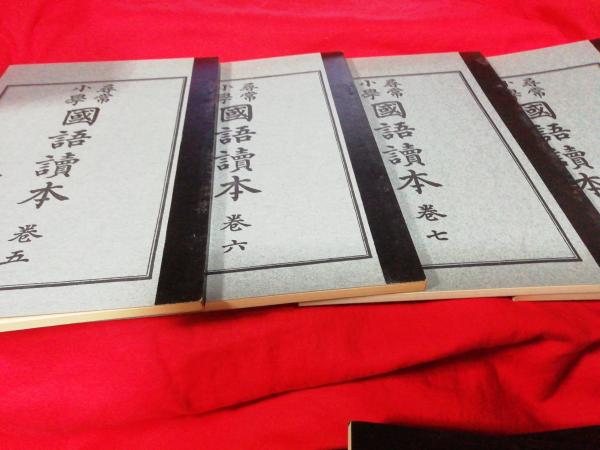 尋常
小學
國語讀本
卷五
尋常
小學
國語讀本
卷六
尋常
小學
國語讀本
卷七
尋常
小學
國語讀本